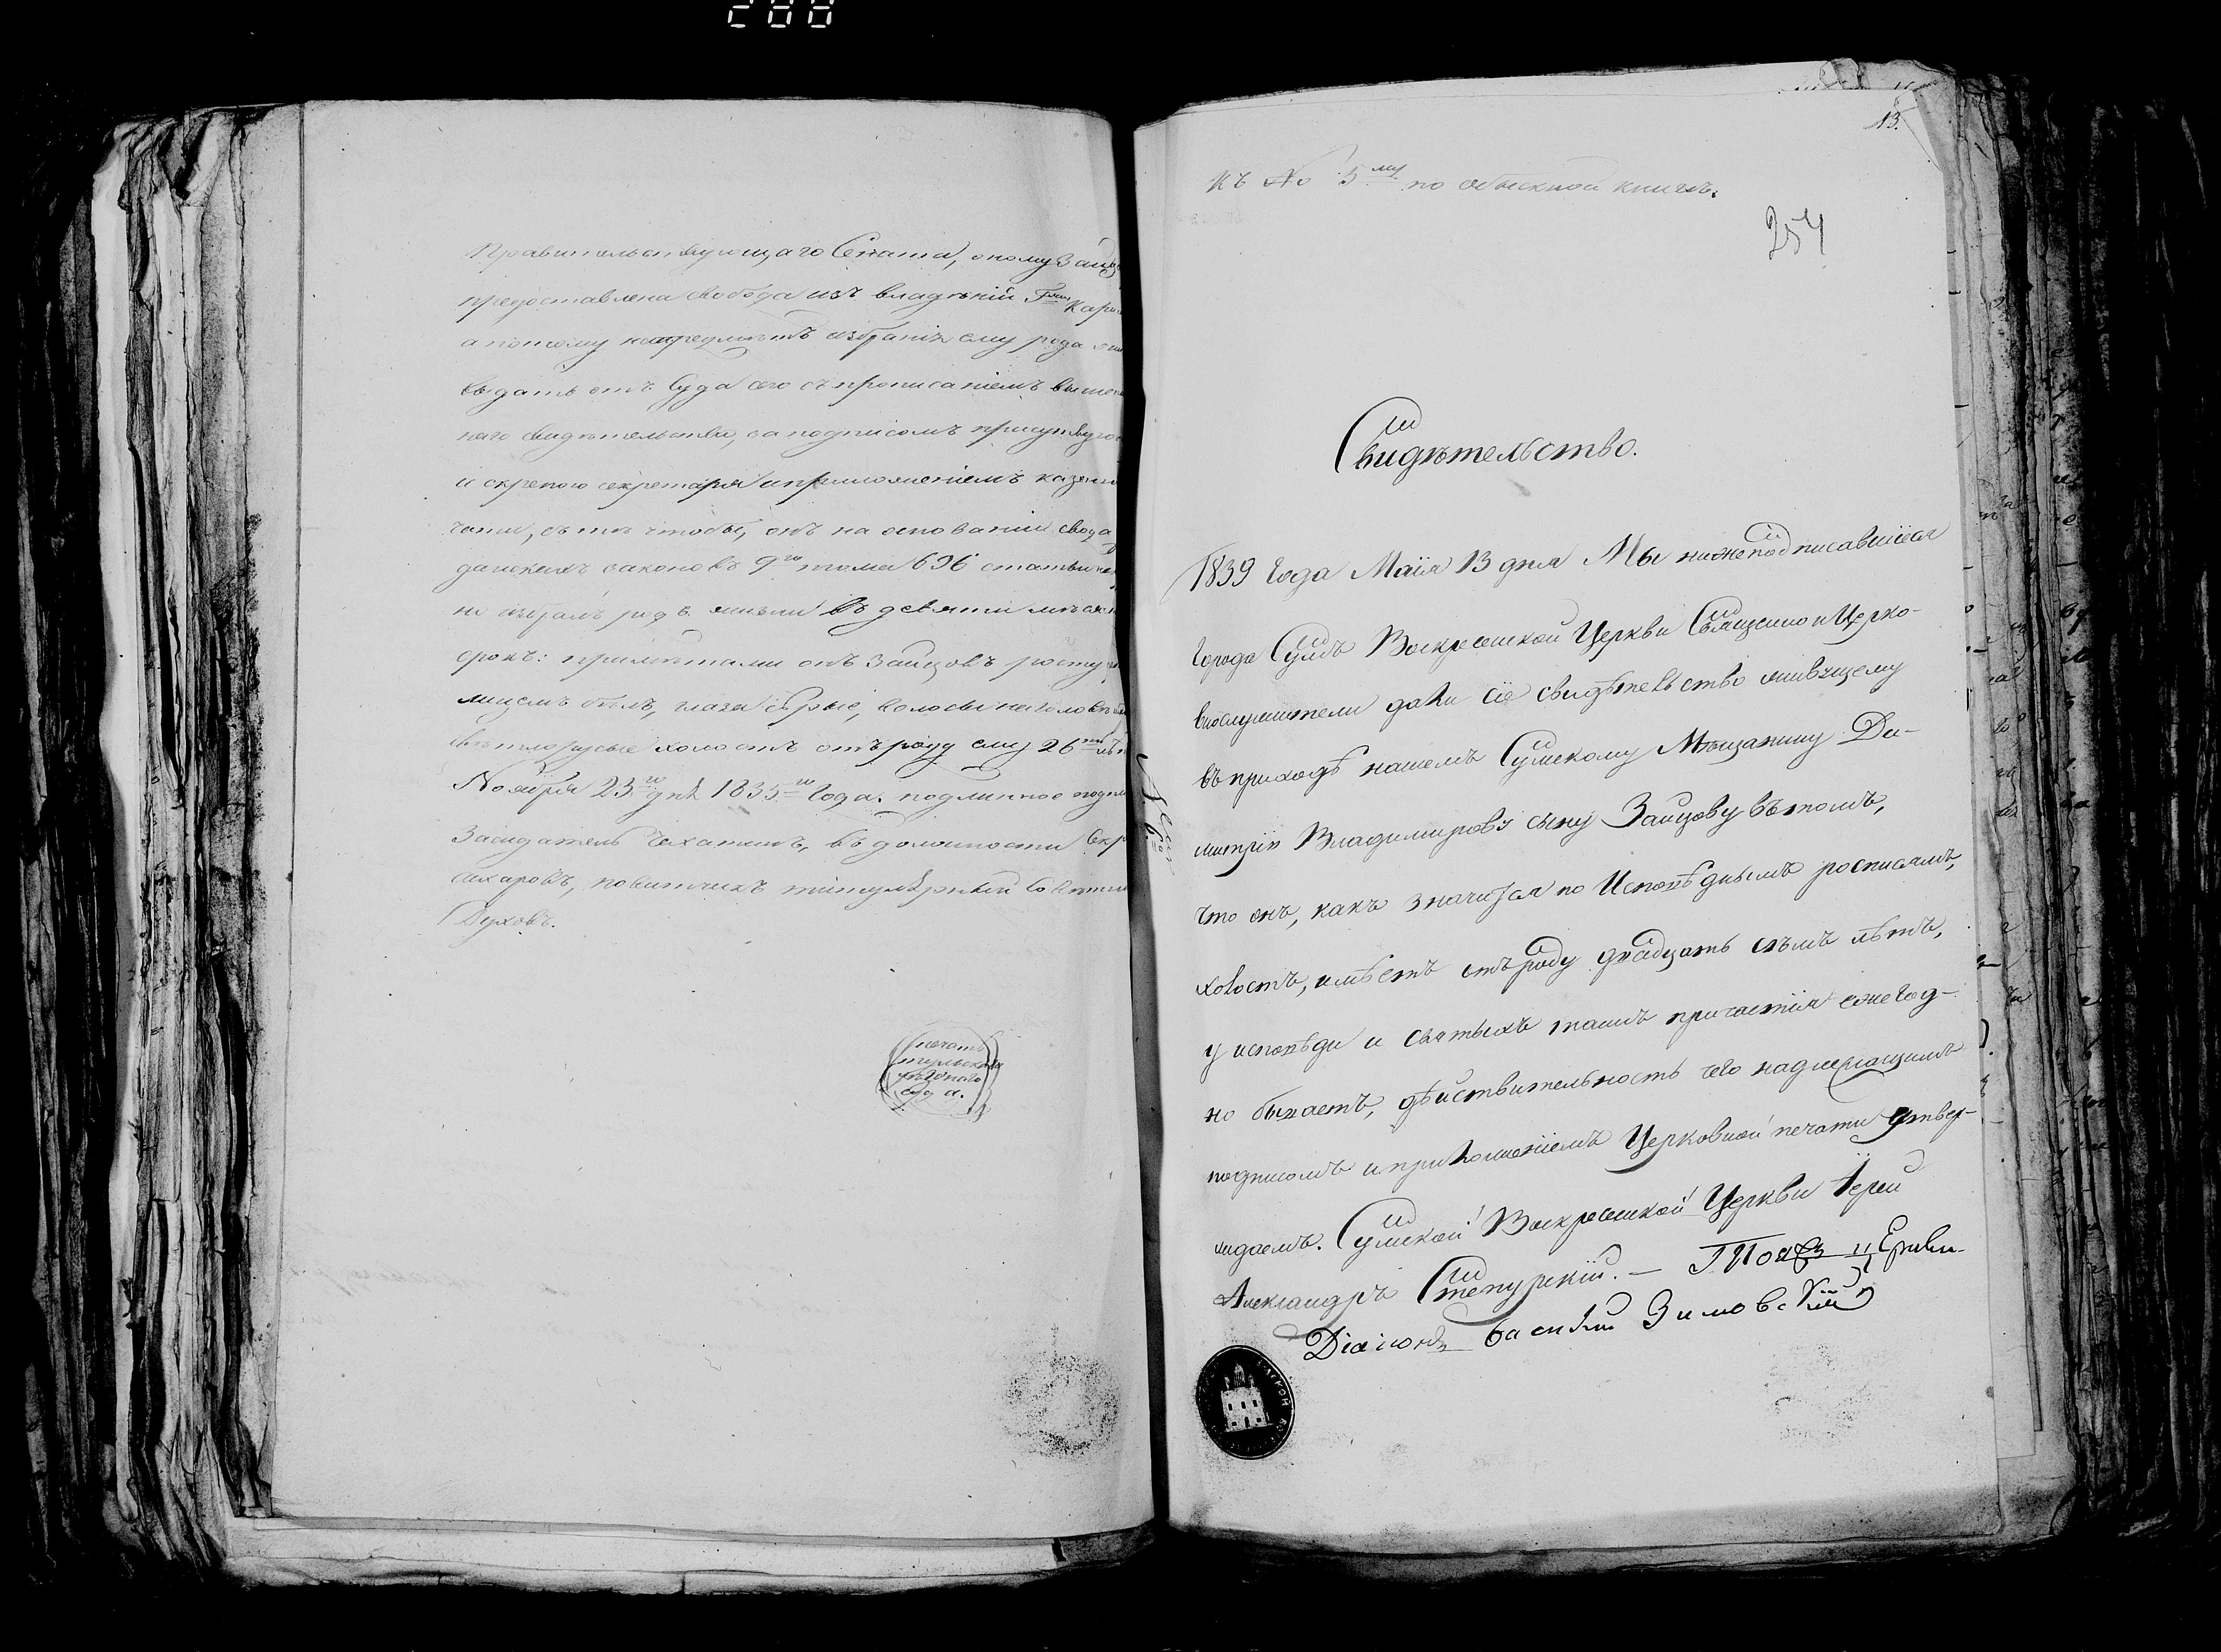 288
Правительствующаго Сената, оному Зайц
предоставлена свобода изъ владѣнiй Гжи Кари
а потому на предметъ избранiя ему рода жи
выдать отъ Суда сего съ прописанiемъ вышеп
наго свидѣтельство, за подписомъ присутствую
и скрепою секретаря и приложенiемъ казенно
чати, съ тѣмъ чтобы, онъ на основанiи свода
данскихъ законовъ 9го тома 696 статьи
но избралъ родъ жизни въ девяти мѣсячн
срокъ: примѣтами онъ Зайцовъ росту
лицемъ бѣлъ, глаза сѣрые, волосы на головѣ
свѣтлорусые холостъ отъ роду ему 26ть лѣт
Ноября 23го дня 1835го Года. подлинное подпи
Засидатель Чахатинъ, въ должности Секр
Сахаровъ, повытчикъ титулярный Совѣтни
Духовъ.
печать
уѣзднаго
суда.
13.
Къ № 5му по обыскной книгѣ.
254
Свидѣтельство.
1839 Года Маiя 13 дня Мы нижеподписавшiеся
Города Сумъ Воскресенской Церкви Священно и Церко-
внослужители дали сiе свидѣтельство жившему
въ приходѣ нашемъ Сумскому Мѣщанину Ди-
митрiю Владимирову сыну Зайцову въ томъ,
что онъ, какъ значится по Исповѣднымъ росписямъ,
холостъ, имѣетъ отъ роду двадцать семь лѣтъ,
у исповѣди и святыхъ таинъ причастiя ежегод-
но бываетъ, дѣйствительность чего надлежащимъ
подписомъ и приложенiемъ Церковной печати утвер-
ждаемъ. Сумской Воскресенской Церкви Iерей
Александръ Степурскiй. —
Дiаконъ Василiй Зимовскiй